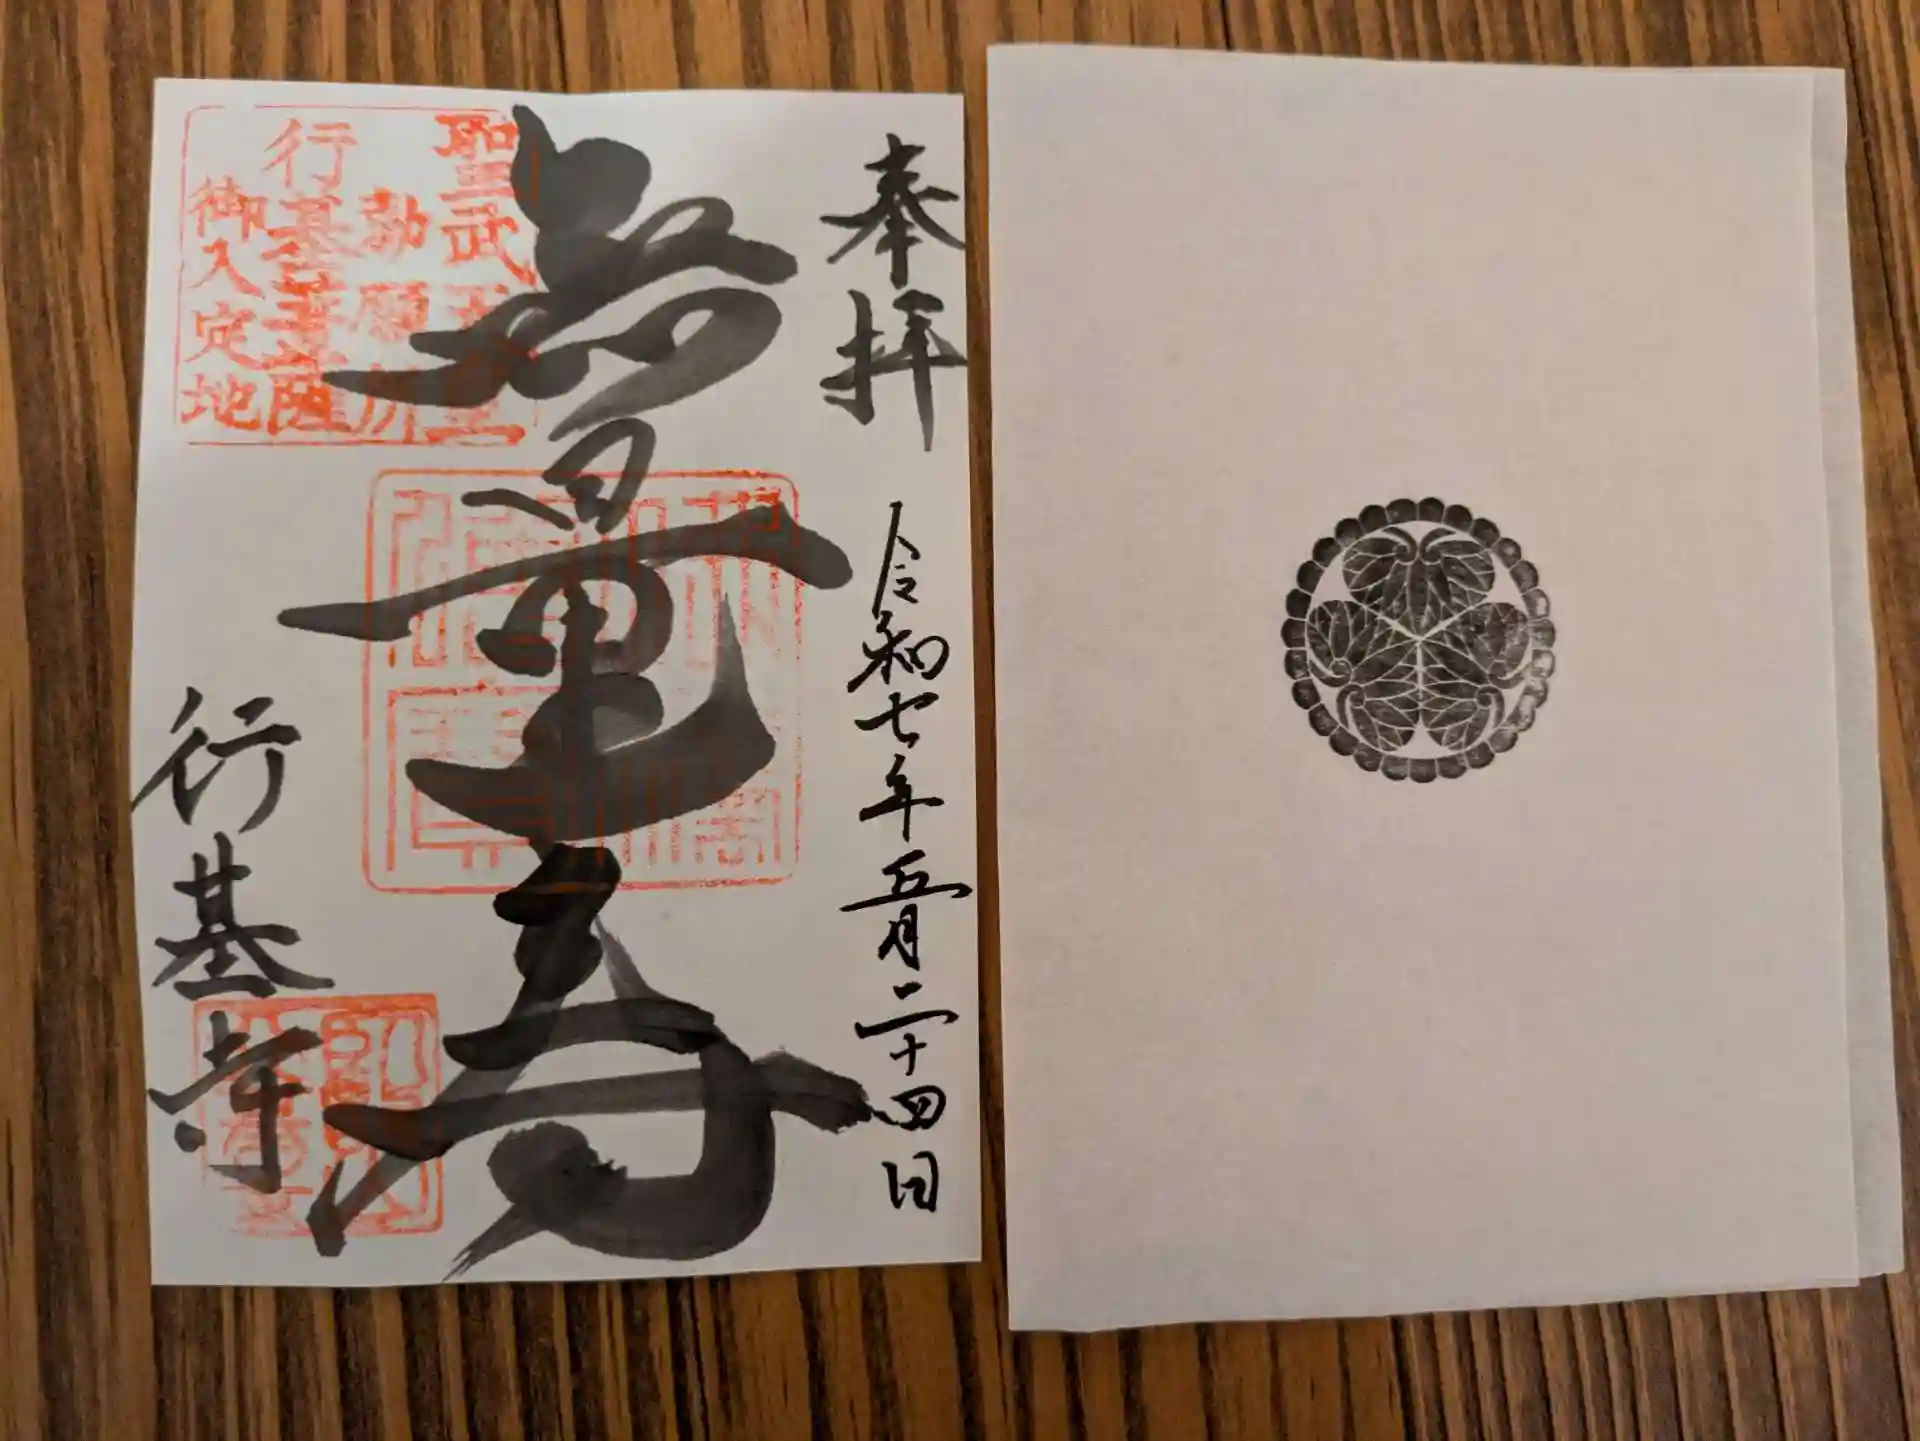 奉拝
令和七年五月二十四日
聖武天皇
勅願所
行基菩薩
御入定地
無量寿
行基寺